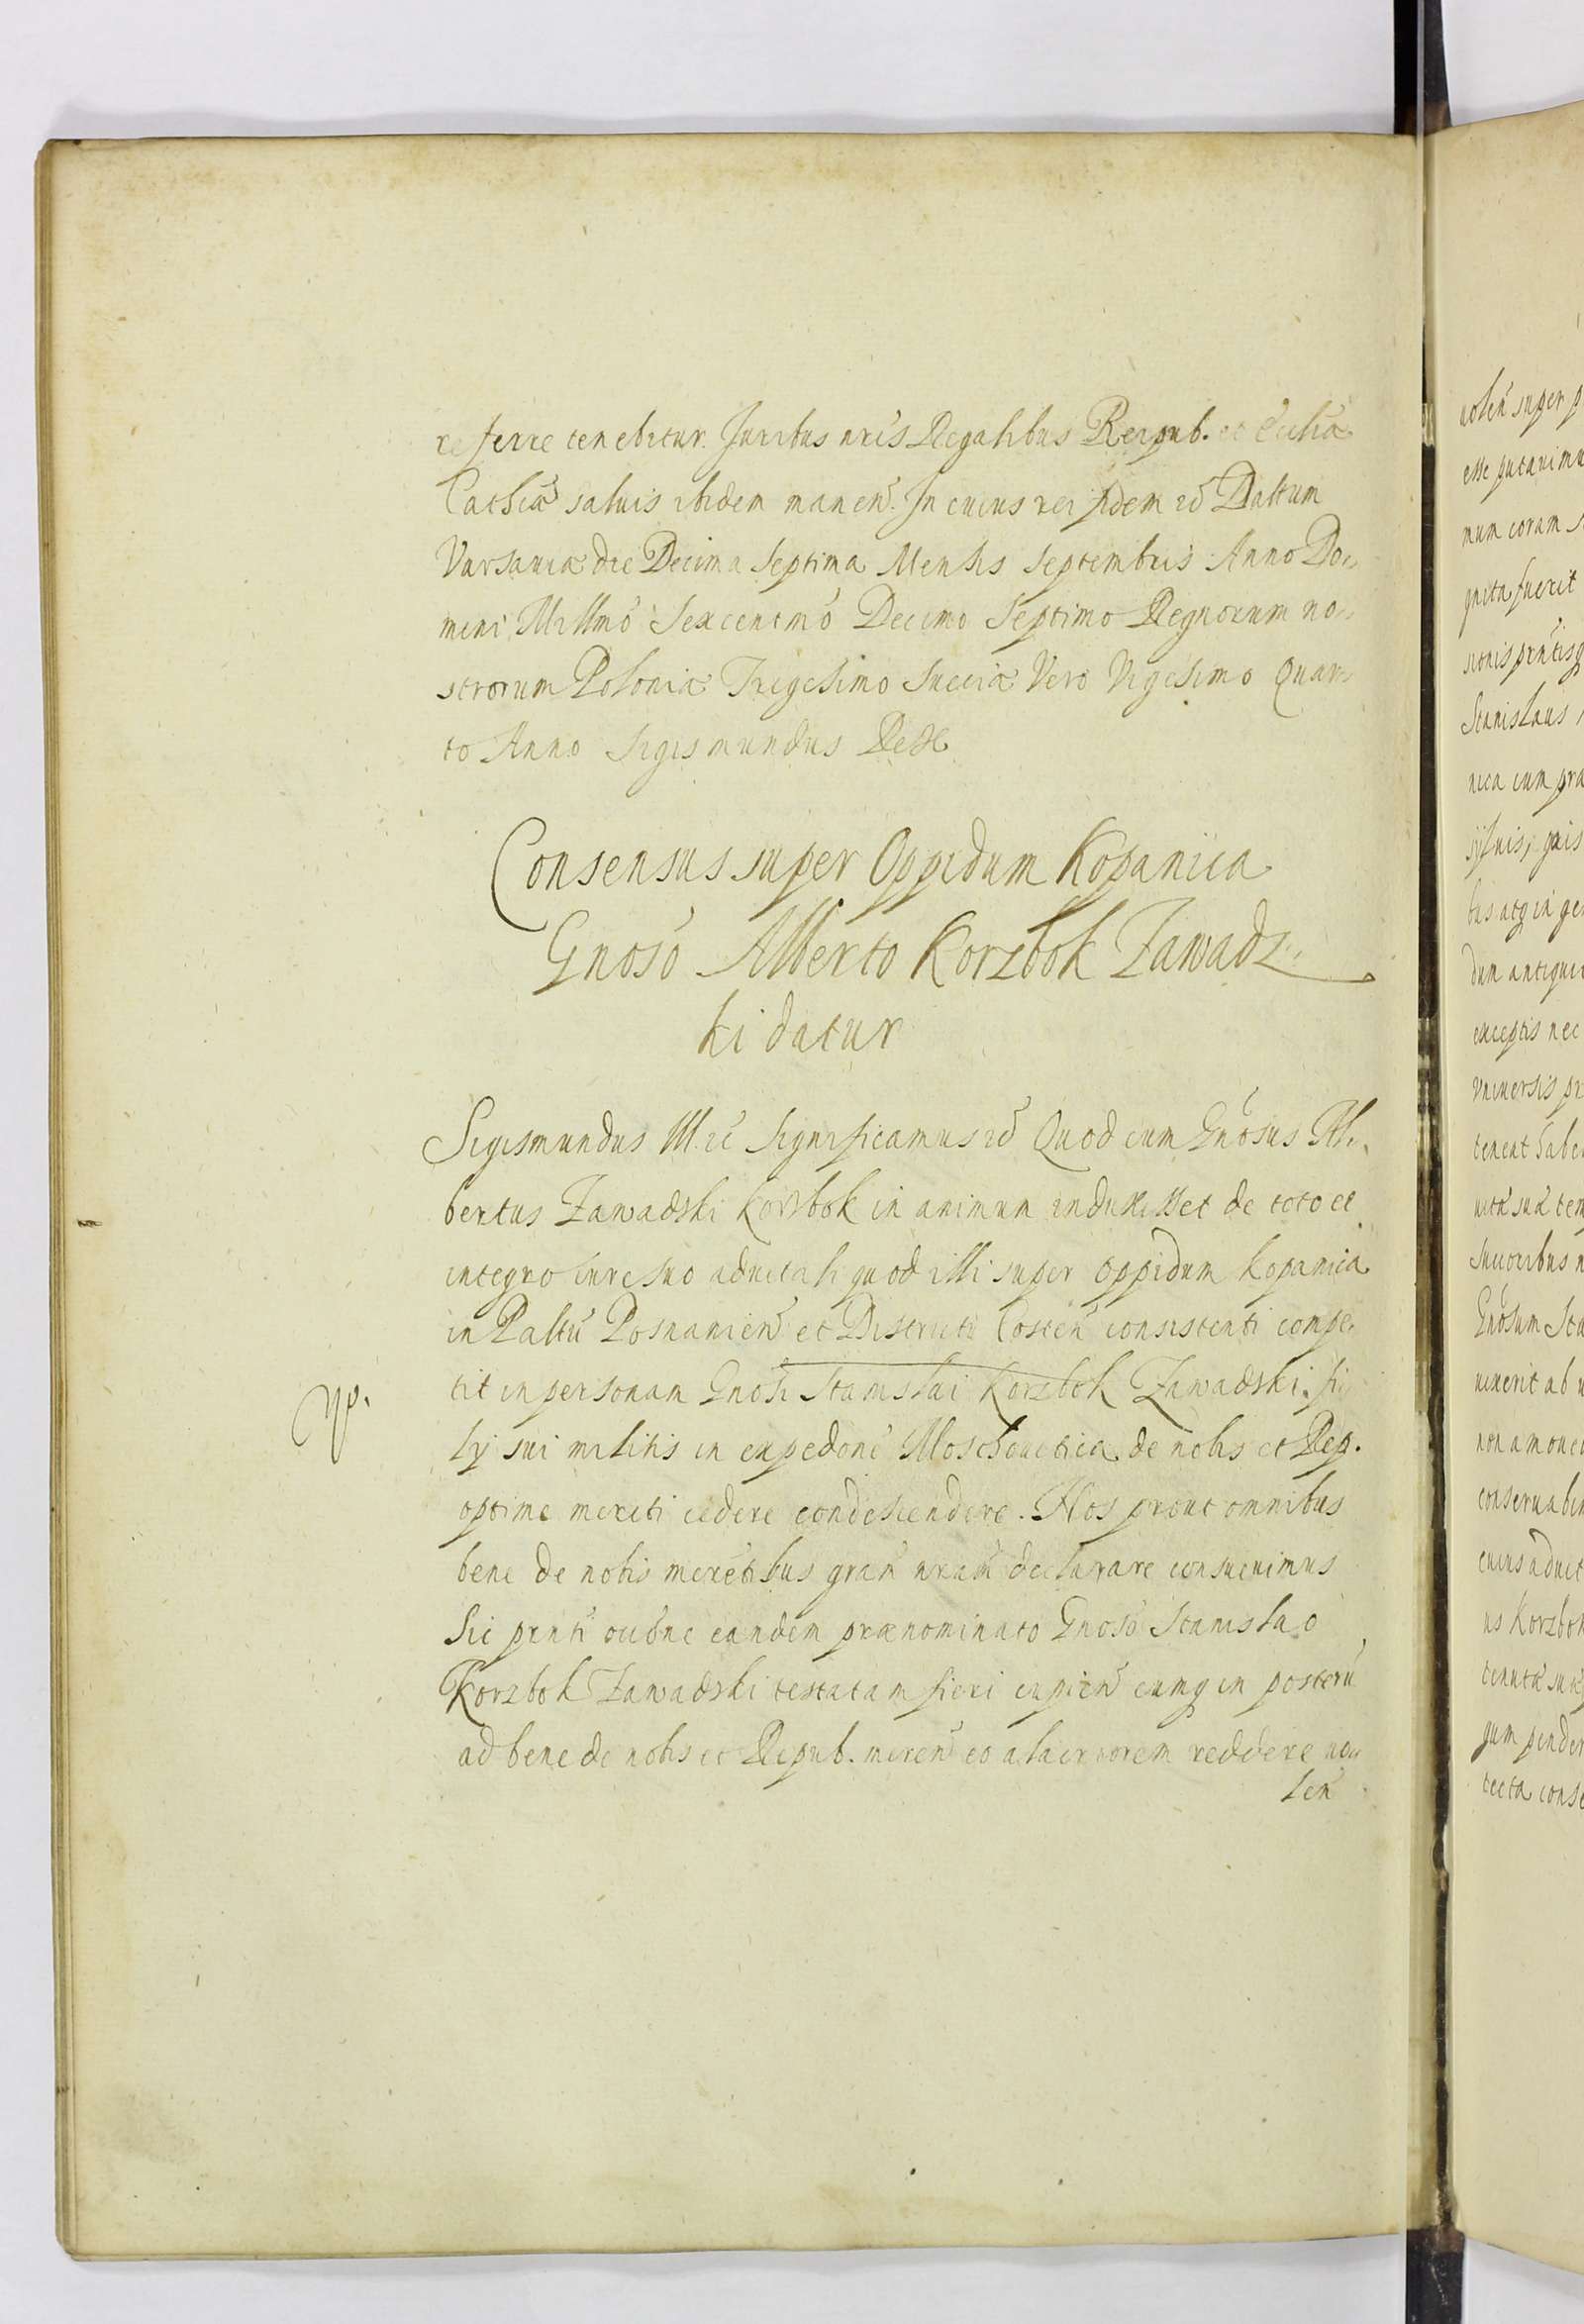 referre tenebitur. Juribus nris Regalibus Reipub. et Ecclia
Cathca saluis ibidem manen. In cuius rei fidem ec Dattum
Varsauiæ die Decima Septima Mensis Septembris Anno Do„
mini Millmo Sexcentmo Decimo Septimo Regnorum no„
strorum Poloniæ Trigesimo Sueciæ Vero Vigesimo Quar„
to Anno Sigismundus Rex
Consensus super Oppidum Kopanica
Gnoso Alberto Korzbok Zawadz„
ki datur
Sigismundus III. ec Significamus ec Quod cum Gnosus Al„
bertus Zawadski Korzbok in animum induxisset de toto et
integro iure suo aduitali quod illi super oppidum Kopanica
in Paltu Posnanien et Districtu Costen consistenti compe„
tit in personam Gnosi Stanislai Korzbok Zawadski fi„
lij sui militis in expedone Moschouitica de nobis et Rep.
optime meriti cedere condescendere. Nos prout omnibus
bene de nobis meretibus gram nram declarare consueuimus
Sic pnti ocione eandem prænominato Gnoso Stanislao
Korzbok Zawadski testatam fieri cupien eumq in posteru
ad bene de nobis et Repub. meren eo alacriorem reddere uo„
len
uolen super p
esse putauimu
mum coram
gnita fuerit
sionis pntisq
Stanislaus
nica cum pra
ijsuis,
bus atq in ge
dum antiqui
exceptis nec
vniuersis pr
teneat habe
uitæ suæ tem
Succoribus n
Gnosum Sta
uixerit ab u
non amouer
conseruabim
cuius aduit
us Korzbok
tenutæ suæ
gum pender
tecta conse